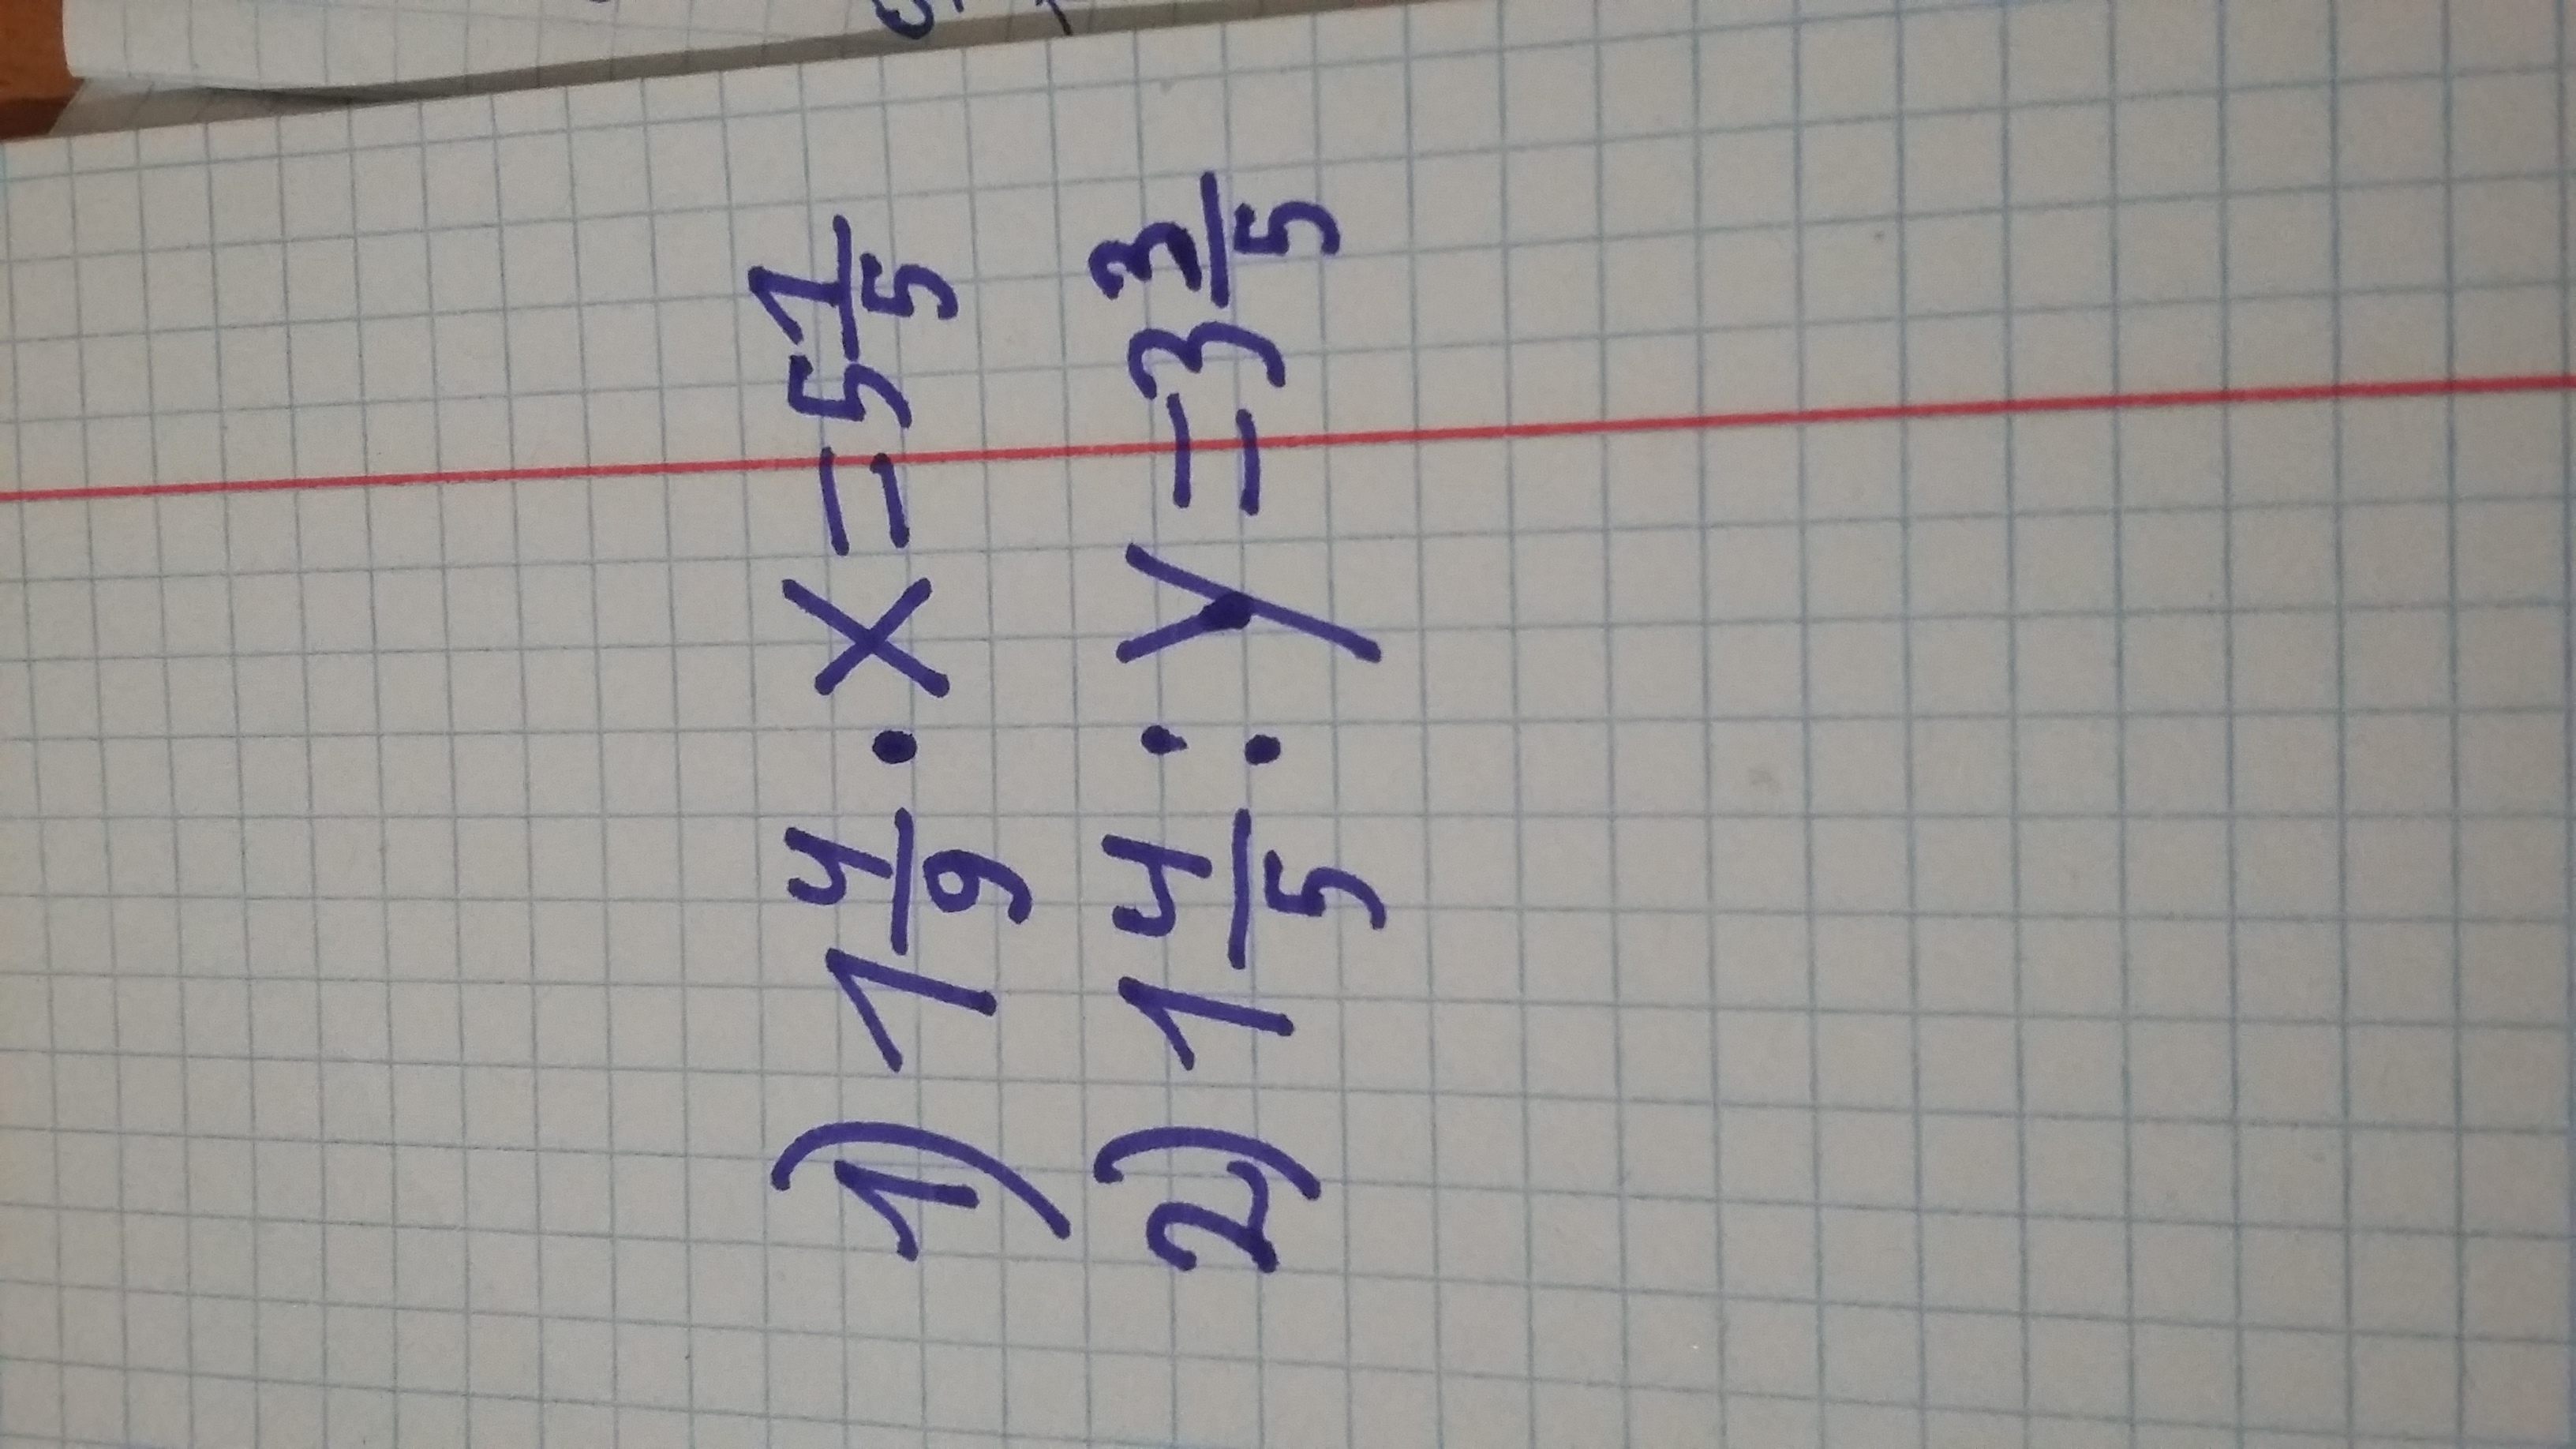 1) 1 4/9 · x = 5 1/5
2) 1 4/5 : y = 3 3/5